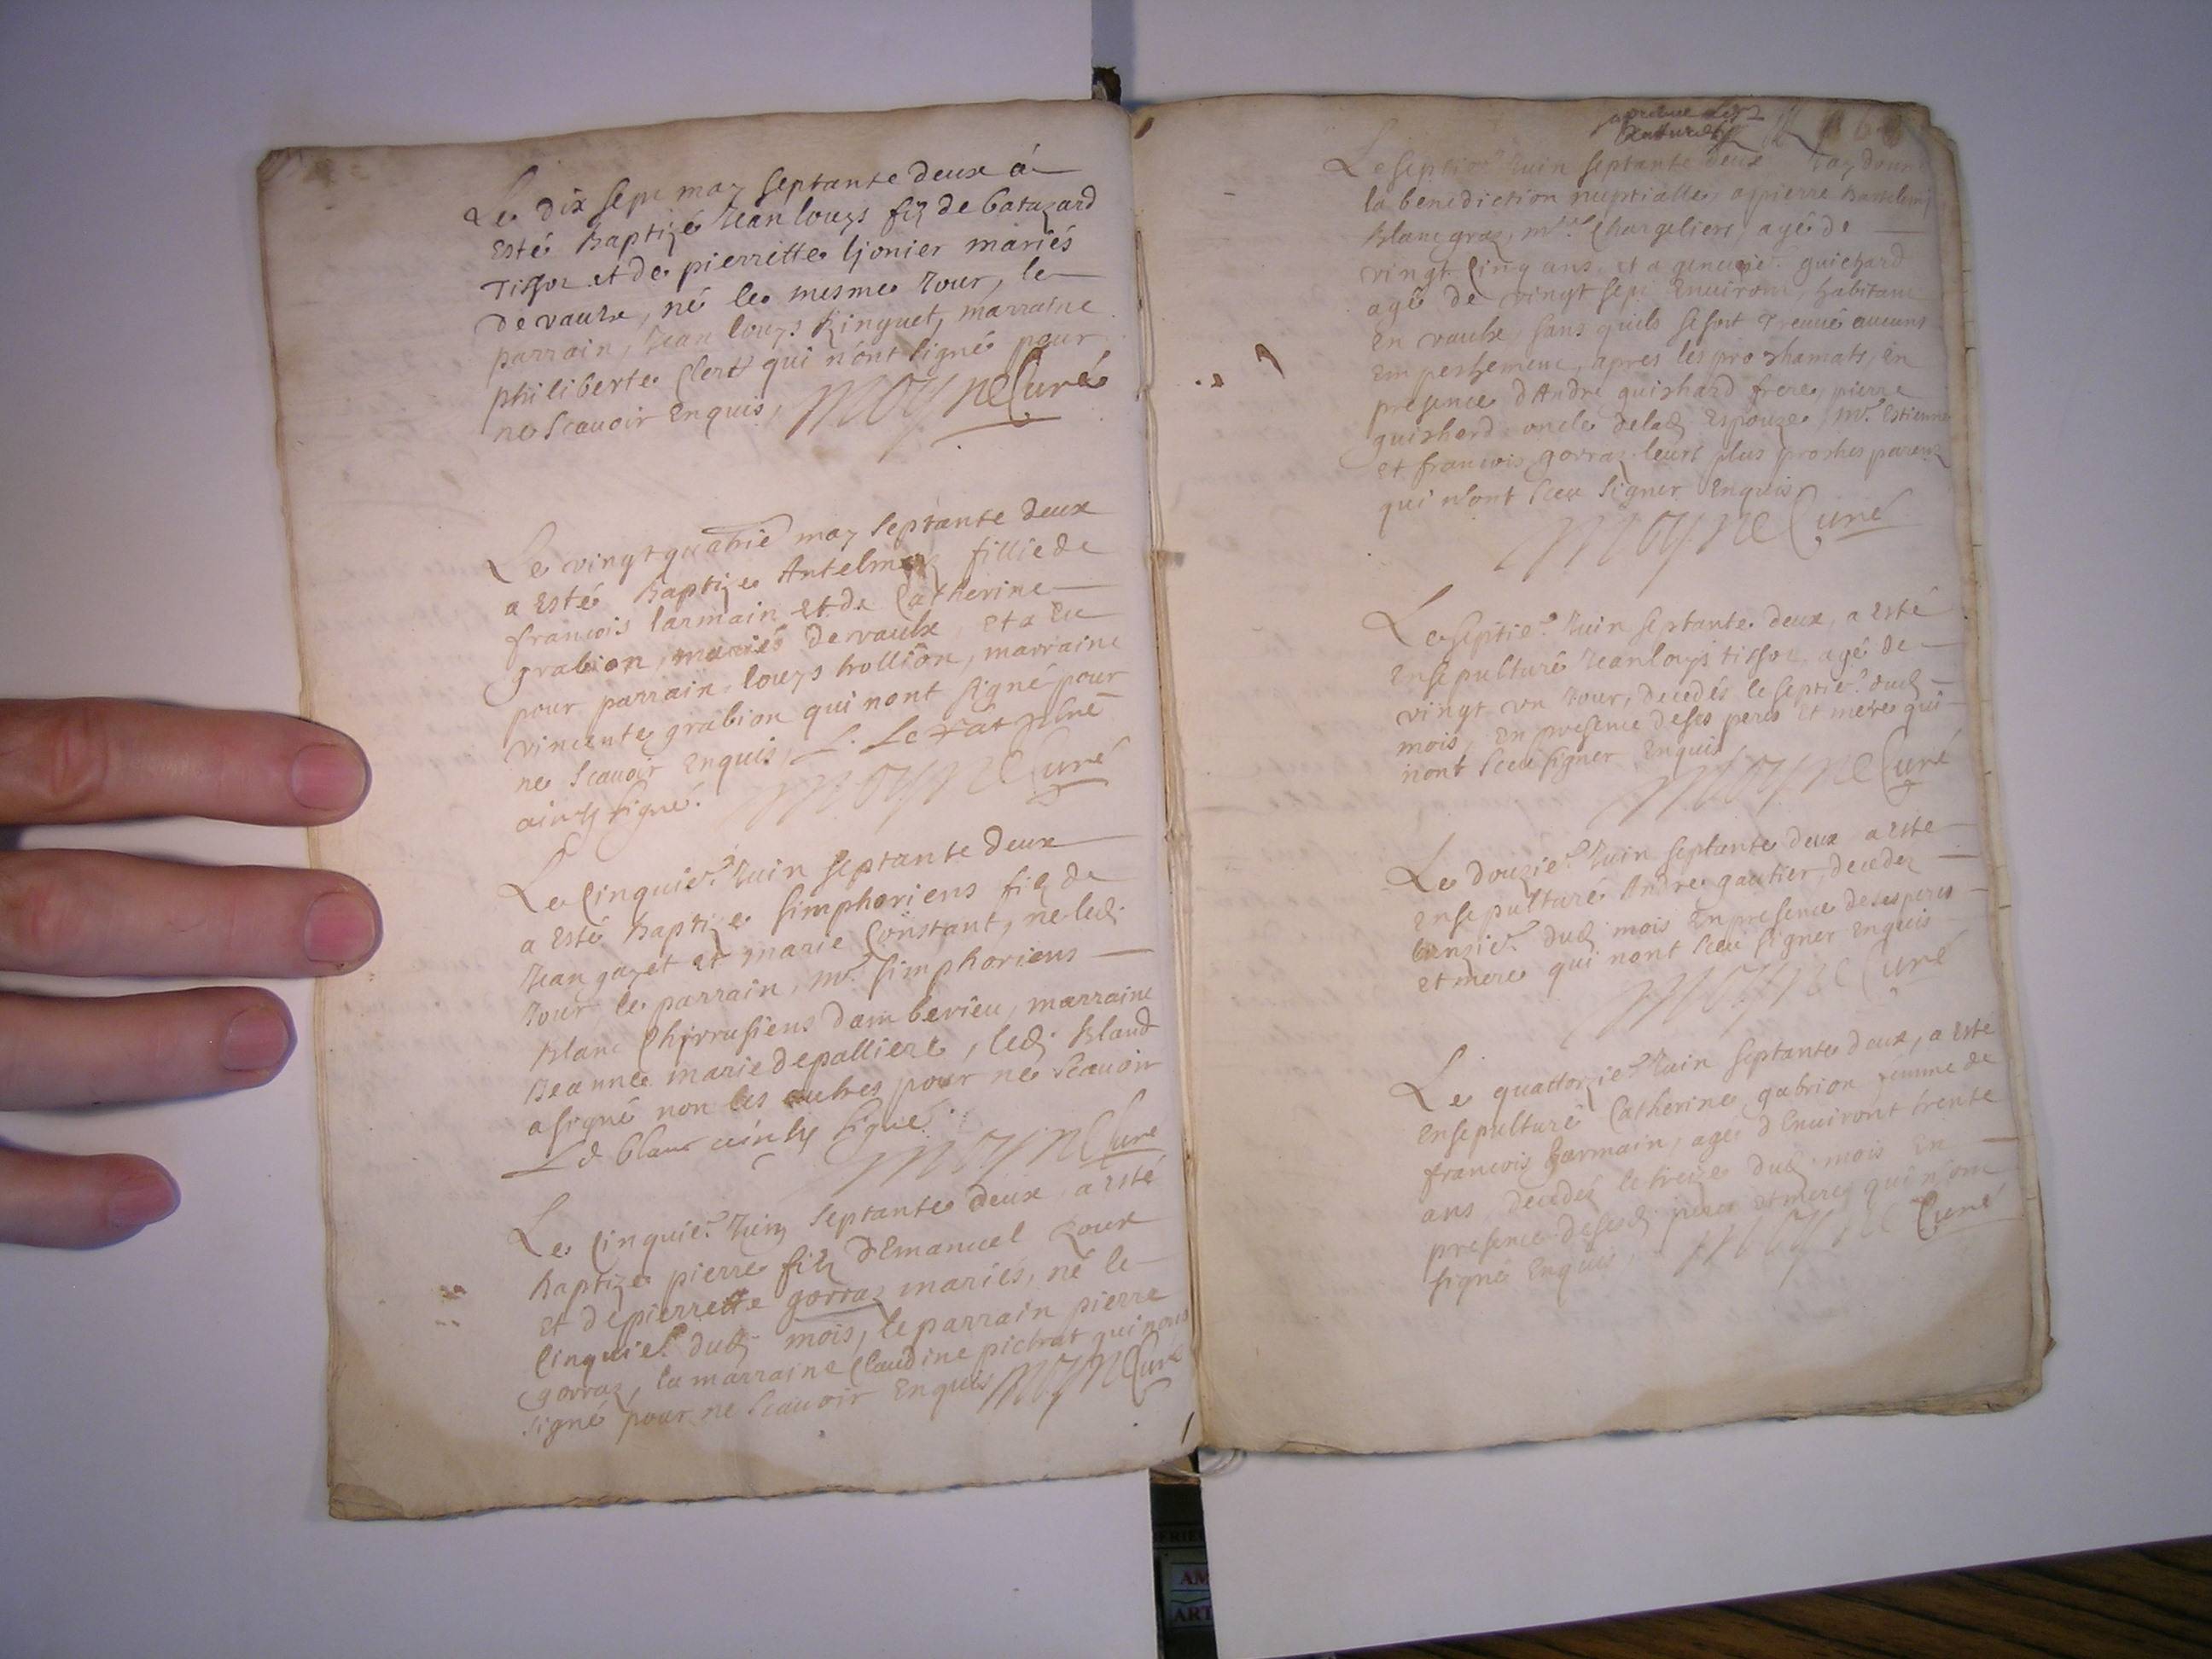 Le dix sept may septante deux à
esté Baptizé Jean louys filz de batazard
Tissot et de pierrette ljonier mariés
de vaulx, né le mesme Jour, le
parrain, Jean louys Ringuet, marraine
philiberte Clert qui n'ont signé pour
ne scauoir enquis, Moyne Curé
Le vingt quatrie may septante deux
a esté Baptize Antelme fillie de
francois Iarmain et de Catherine
grabion, mariés de vaulx, et a eu
pour parrain, louys hollion, marraine
vincente grabion qui nont signé pour
ne scauoir enquis,
ainsy signé. Moyne Curé
Le Cinquie. Juin septante deux
a esté Baptize simphoriens filz de
Jean gazet et marie Constant, ne led.
Jour, le parrain, mr. simphoriens
Blanc Chirrusiens dam berieu, marraine
Jeanne marie depalliere, led. Bland
a signé non les autres pour ne scauoir
Blanc ainsy signé. Moyne Curé
Le Cinquie. Juin septante deux a esté
Baptize pierre filz d'Emanuel Roux
et de pierrette gorraz mariés, né le
Cinquie. dud. mois, le parrain pierre
gorraz, la marraine Claudine pichat qui nont
signé pour ne scauoir enquis Moyne Curé
Le septie. Juin septante deux Jay donné
la benediction nuptialle, a pierre Bartelemy
Blanc graz, mre. Chargeliere, agé de
vingt Cinq ans, et a geneuie. guichard
agé de vingt sept enuiront, habitant
en vaulx, sans quils se soit treuué aucuns
empeschement, apres les prochamats, en
presence d'Andre guichard frere, pierre
guichard oncle de lad. Espouze, mr. Estienne
et francois gorraz leurs plus proches parens
qui n'ont sceu signer enquis
Moyne Curé
Le septie. Juin septante deux, a esté
ensepulturé Jean loys tissot, agé de
vingt vn Jour, decedés le septie. dud.
mois, en presence de ses peres et meres qui
nont sceu signer enquis
Moyne Curé
Le douzie. Juin septante deux a este
ensepulturé Andre gautier, decedez
lunzie. dud. mois en presence de ses peres
et mere qui nont sceu signer enquis
Moyne Curé
Le quattorzie. Juin septante deux, a esté
ensepulturé Catherine gabrion femme de
francois Garmain, agee d'Enuiront trente
ans, decedez le treize dud. mois en
presence de sesd. peres et meres qui n'ont
signe enquis Moyne Curé
AM
ART